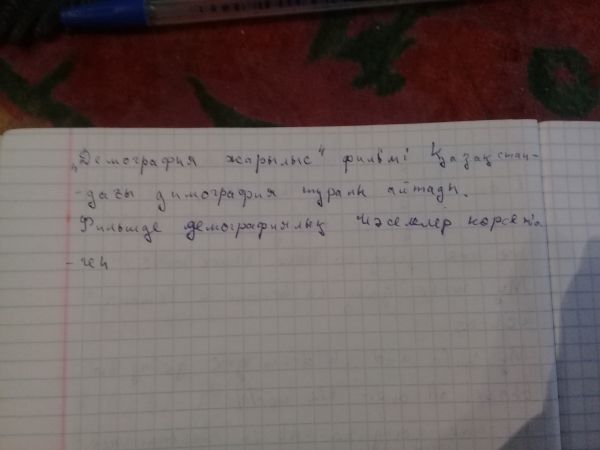 „Демография жарылыс" фильмі Қазақстан-
-дағы димография турали айтады.
Фильмде демографиялық мәселелер көрсетіл
-ген